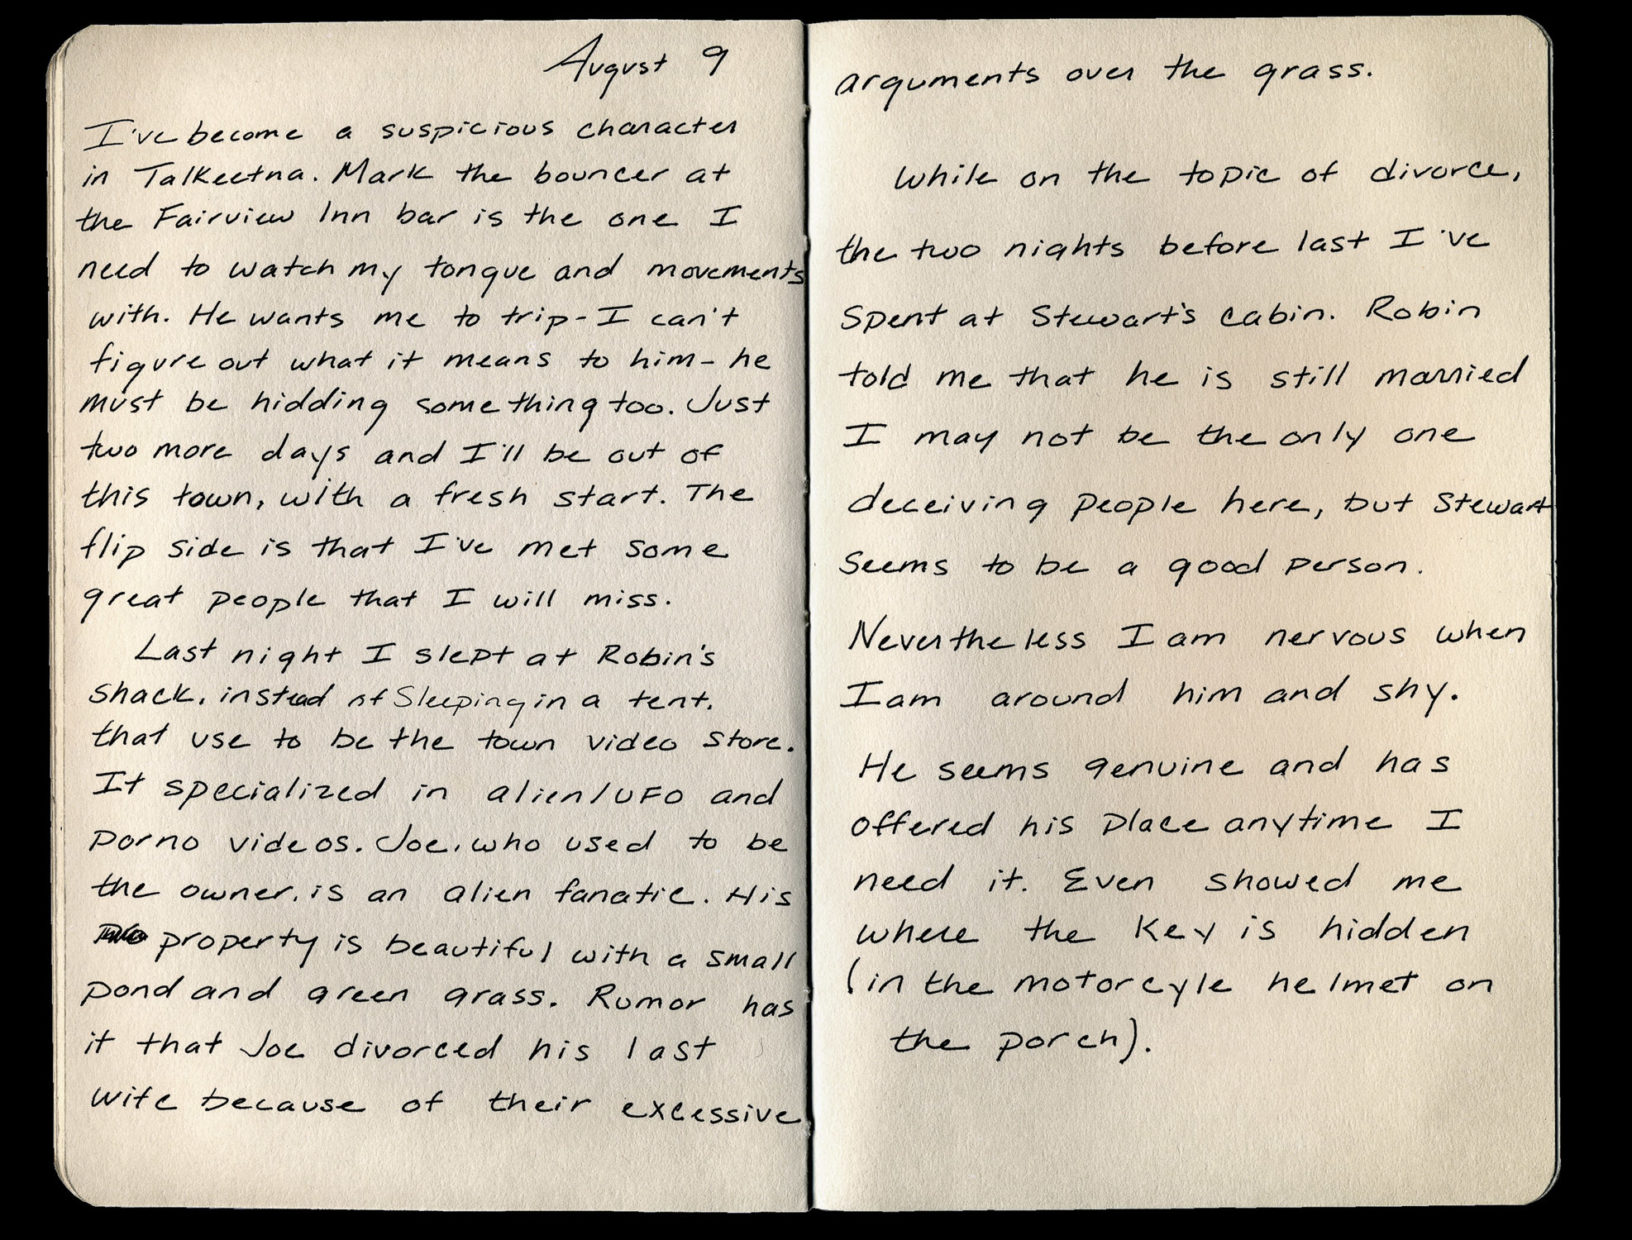 August 9
I've become a suspicious character
in Talkeetna. Mark the bouncer at
the Fairview Inn bar is the one I
need to watch my tongue and movements
with. He wants me to trip - I can't
figure out what it means to him - he
must be hidding something too. Just
two more days and I'll be out of
this town, with a fresh start. The
flip side is that I've met some
great people that I will miss.
Last night I slept at Robin's
shack. instead of Sleeping in a tent.
that use to be the town video store.
It specialized in alien/UFO and
porno videos. Joe. who used to be
the owner. is an alien fanatic. His
property is beautiful with a small
pond and green grass. Rumor has
it that Joe divorced his last
wife because of their excessive
arguments over the grass.
While on the topic of divorce,
the two nights before last I've
spent at Stewart's cabin. Robin
told me that he is still married
I may not be the only one
deceiving people here, but Stewart
seems to be a good person.
Nevertheless I am nervous when
I am around him and shy.
He seems genuine and has
offered his place anytime I
need it. Even showed me
where the key is hidden
(in the motorcyle helmet on
the porch).